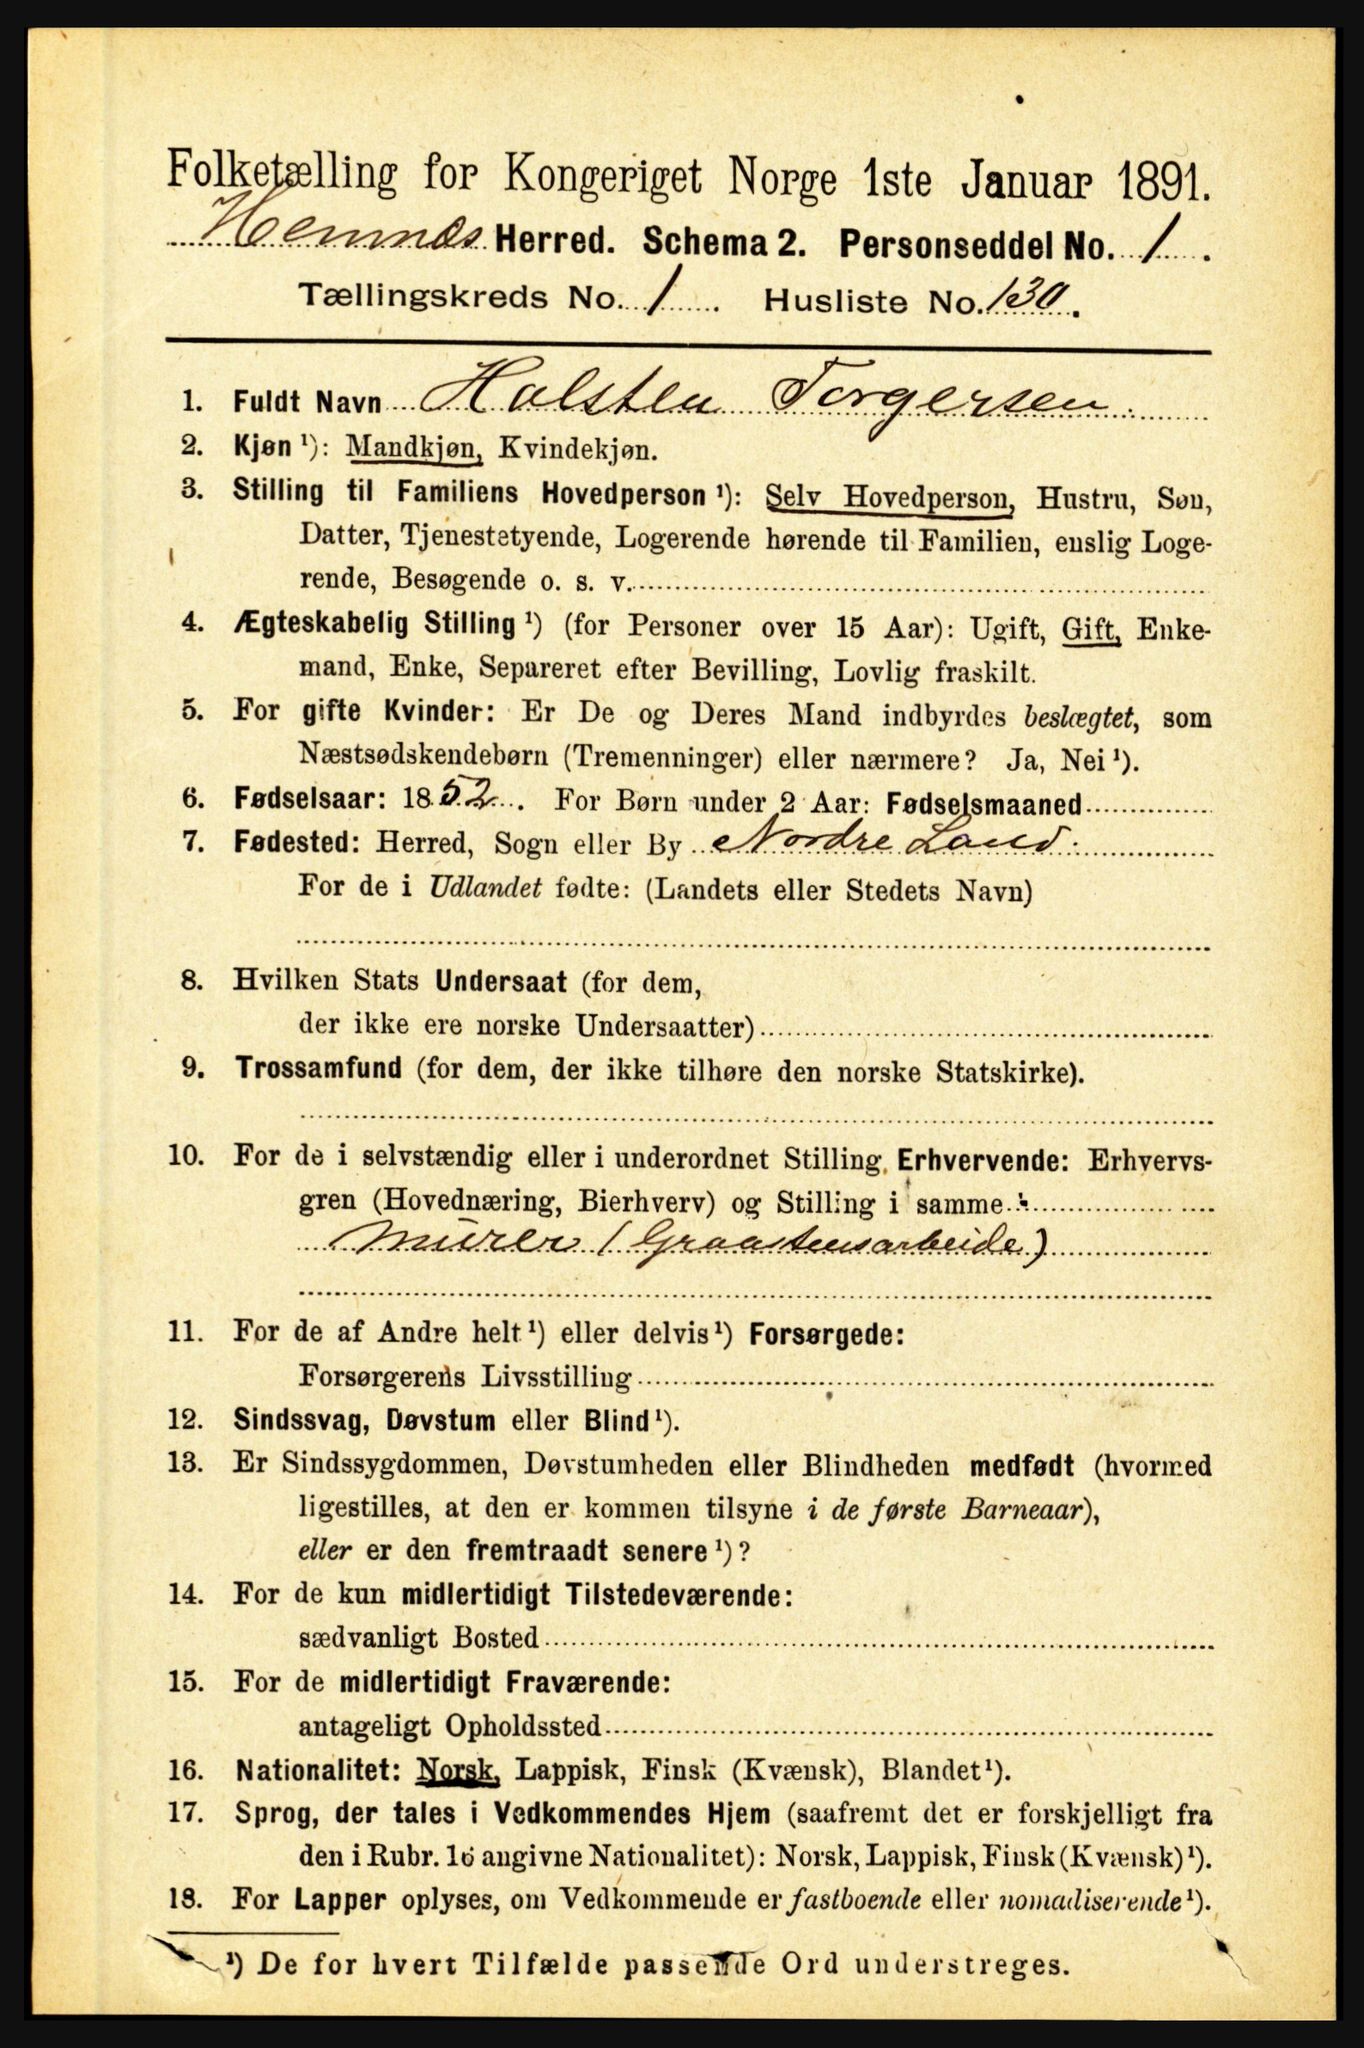 Folketælling for Kongeriget Norge 1ste Januar 1891.
Hemnæs Herred. Schema 2. Personseddel No. 1.
Tællingskreds No. 1. Husliste No. 130.
1. Fuldt Navn Halsten Torgersen.
2. Kjøn ¹): Mandkjøn, Kvindekjøn.
3. Stilling til Familiens Hovedperson ¹): Selv Hovedperson, Hustru, Søn,
Datter, Tjenestetyende, Logerende hørende til Familien, enslig Loge-
rende, Besøgende o. s. v.
4. Ægteskabelig Stilling ¹) (for Personer over 15 Aar): Ugift, Gift, Enke-
mand, Enke, Separeret efter Bevilling, Lovlig fraskilt.
5. For gifte Kvinder: Er De og Deres Mand indbyrdes beslægtet, som
Næstsødskendebørn (Tremenninger) eller nærmere? Ja, Nei ¹).
6. Fødselsaar: 1852. For Børn under 2 Aar: Fødselsmaaned
7. Fødested: Herred, Sogn eller By Nordre Land.
For de i Udlandet fødte: (Landets eller Stedets Navn)
8. Hvilken Stats Undersaat (for dem,
der ikke ere norske Undersaatter)
9. Trossamfund (for dem, der ikke tilhøre den norske Statskirke).
10. For de i selvstændig eller i underordnet Stilling Erhvervende: Erhvervs-
gren (Hovednæring, Bierhverv) og Stilling i samme
Murer (Graastensarbeide)
11. For de af Andre helt ¹) eller delvis ¹) Forsørgede:
Forsørgerens Livsstilling
12. Sindssvag, Døvstum eller Blind ¹).
13. Er Sindssygdommen, Døvstumheden eller Blindheden medfødt (hvormed
ligestilles, at den er kommen tilsyne i de første Barneaar),
eller er den fremtraadt senere ¹)?
14. For de kun midlertidigt Tilstedeværende:
sædvanligt Bosted
15. For de midlertidigt Fraværende:
antageligt Opholdssted
16. Nationalitet: Norsk, Lappisk, Finsk (Kvænsk), Blandet ¹).
17. Sprog, der tales i Vedkommendes Hjem (saafremt det er forskjelligt fra
den i Rubr. 16 angivne Nationalitet): Norsk, Lappisk, Finsk (Kvænsk) ¹).
18. For Lapper oplyses, om Vedkommende er fastboende eller nomadiserende ¹).
¹) De for hvert Tilfælde passende Ord understreges.